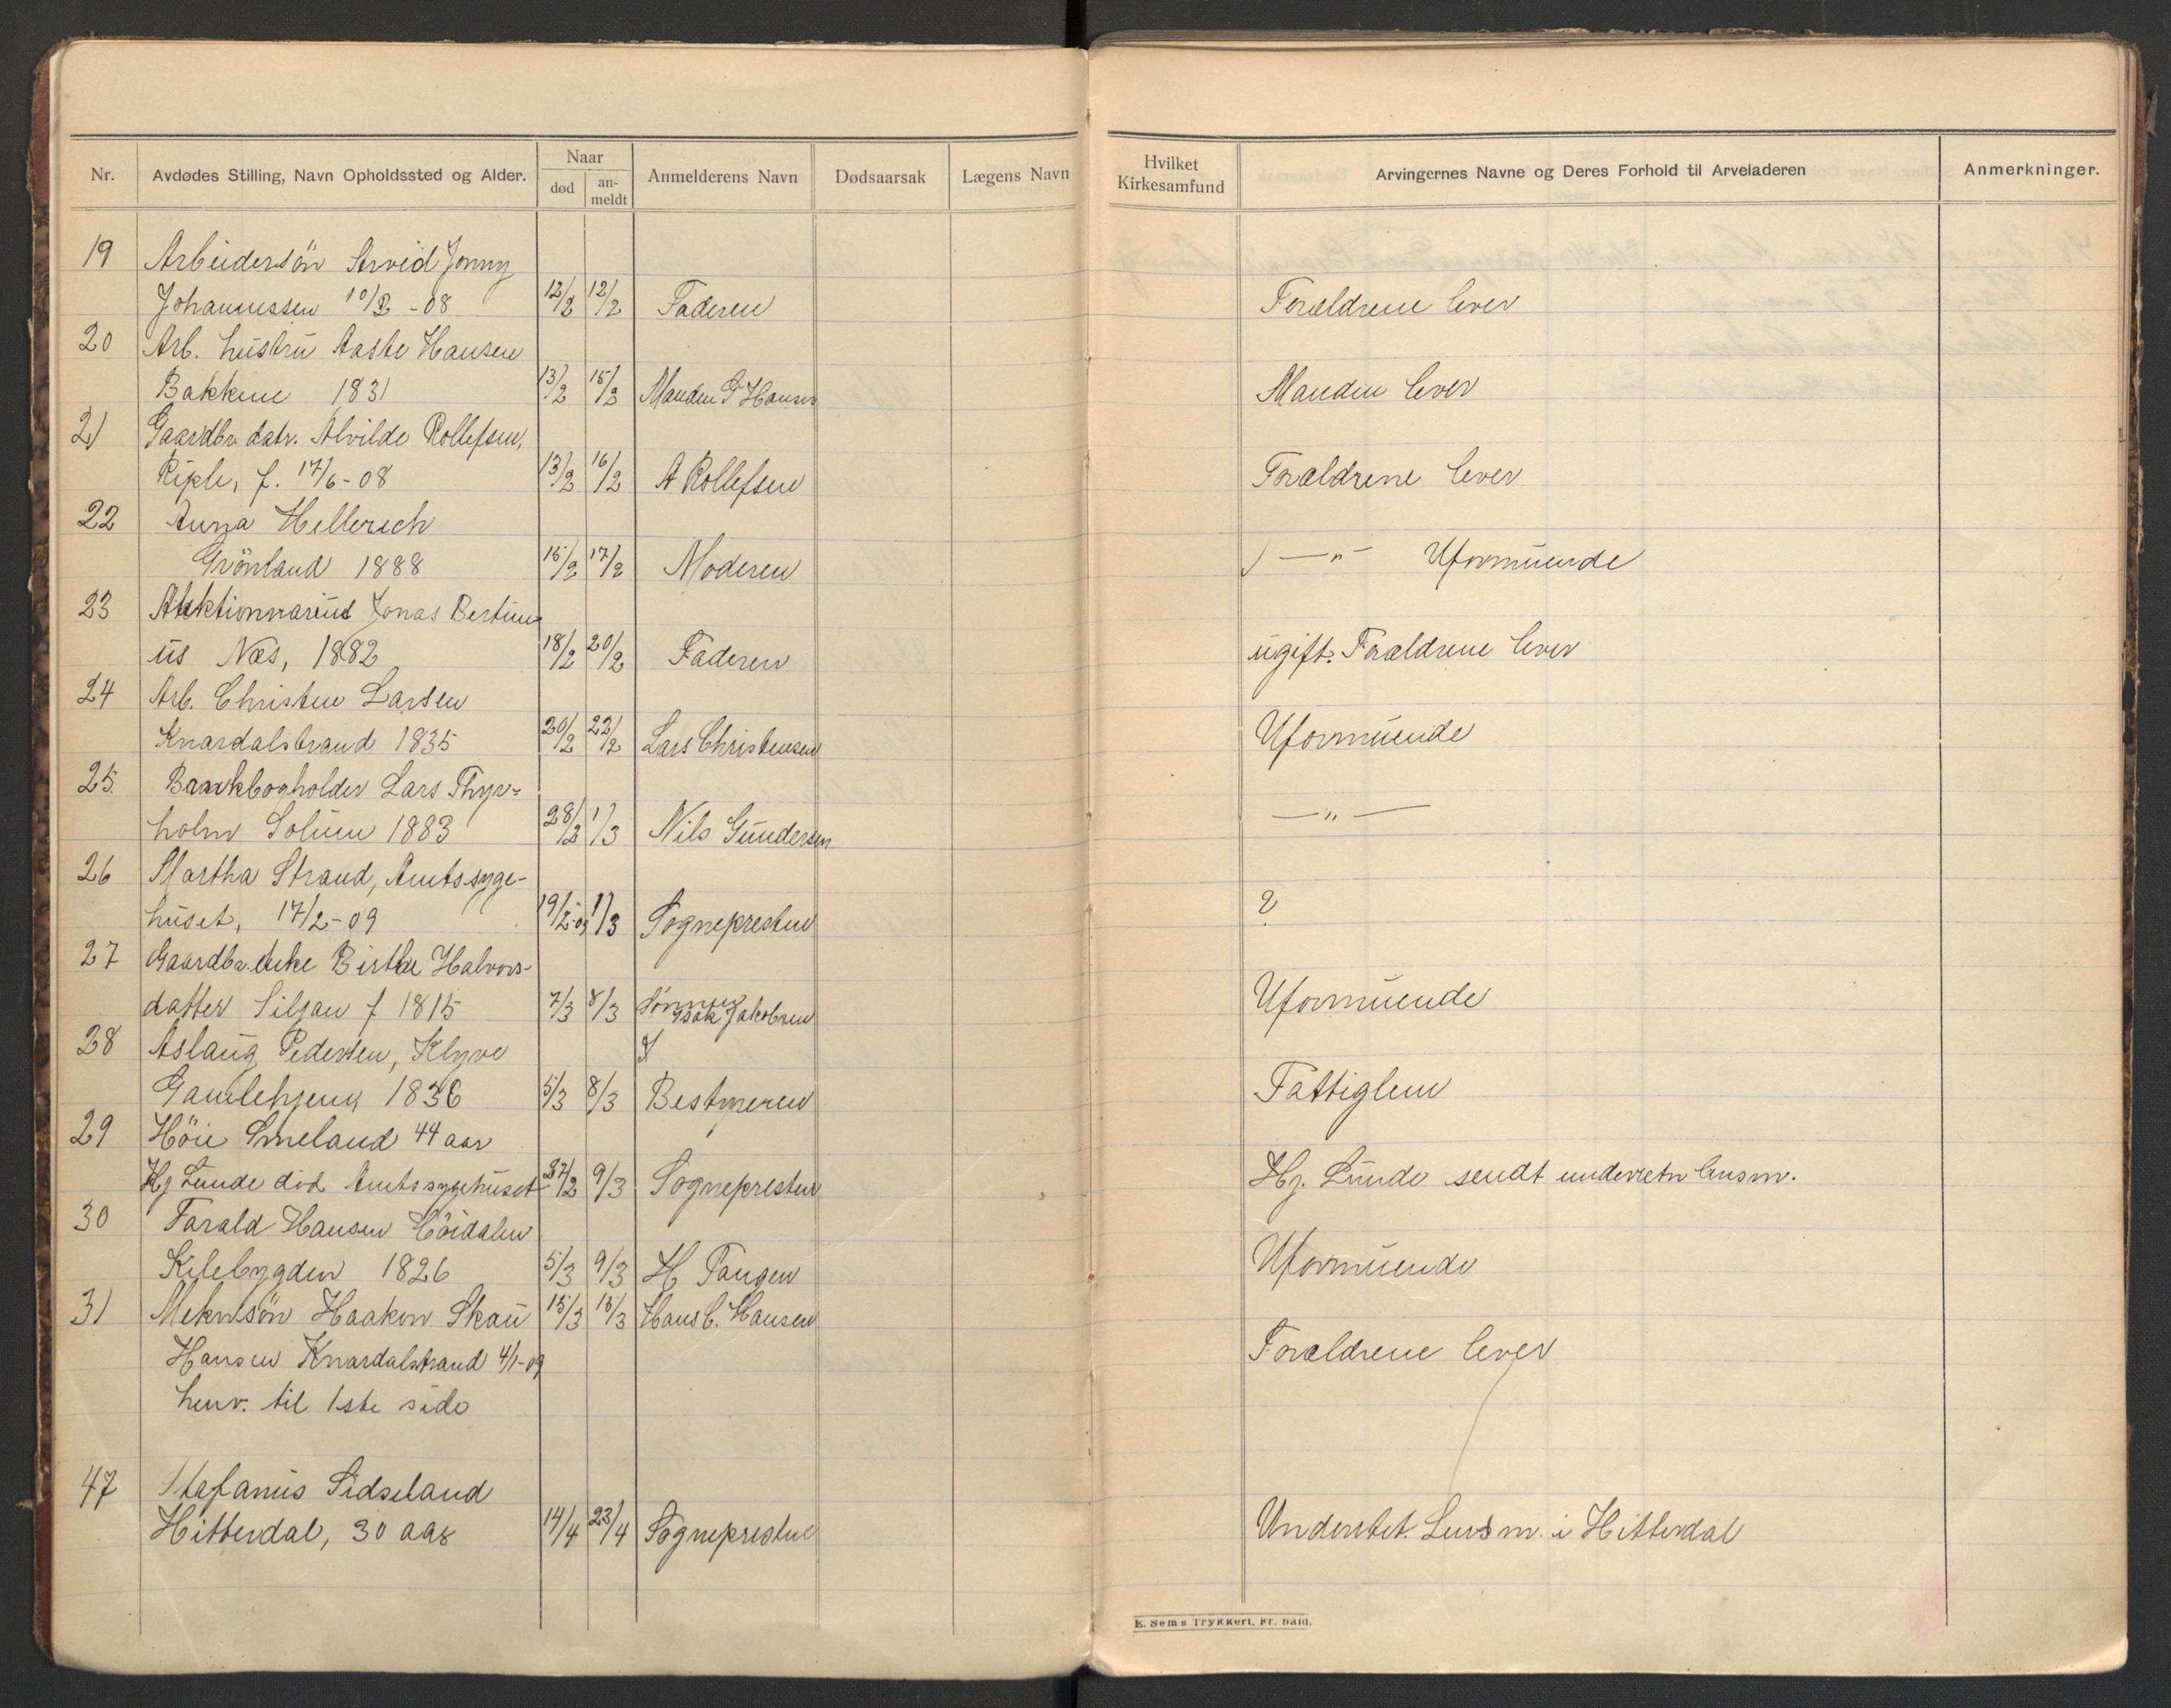 Nr.
Avdødes Stilling, Navn Opholdssted og Alder.
Naar
død
an-
meldt
Anmelderens Navn
Dødsaarsak
Lægens Navn
Hvilket
Kirkesamfund
Arvingernes Navne og Deres Forhold til Arveladeren
Anmerkninger.
19 Arbeidersön Arvid Jonny
Johannessen 10/2 -08 12/2 12/2 Faderen Forældrene lever
20 Arb. hustru Aaste Hansen
Bakkene 1831 13/2 15/2 Manden G Hansen Manden lever
21 Gaardbr. datr. Alvilde Rollefsen,
Riple, f. 17/6-08 13/2 16/2 A Rollefsen Forældrene lever
22 Anna Hellerich
Grönland 1888 15/2 17/2 Moderen —"— Uformuende
23 Auktionnarius Jonas Bertin
us Næs, 1882 18/2 20/2 Faderen ugift. Forældrene lever
24 Arb. Christen Larsen
Knardalstrand 1835 20/2 22/2 Lars Christensen Uformuende
25. Bankbogholder Lars Thyr-
holm Solum 1883 28/2 1/3 Nils Gundersen —"—
26 Martha Strand, Amtssyge-
huset, 17/2-09 19/2-09 1/3 Sognepresten ?
27 Gaardbr. enke Birthe Halvors-
datter Siljan f 1815 7/3 8/3 Sönnen Isak Jakobsen Uformuende
28 Aslaug Pedersen, Klyve
Gamlehjem 1836 5/3 8/3 Bestyreren Fattiglem
29 Höie Smeland 44 aar
Hj Lunde död Amtssygehuset 27/2 9/3 Sognepresten Hj. Lunde sendt underretn lensm.
30 Tarald Hansen Höidalen
Kilebygden 1826 5/3 9/3 H Tangen Uformuende
31 Meknsön Haakon Skau 15/3 15/3 Hans C. Hansen
Hansen Knardalstrand 4/1-09 Forældrene lever
henv. til 1ste side
47 Stefanus Sidseland
Hitterdal, 30 aar 14/4 23/4 Sognepresten Underret. Lensm. i Hitterdal
E. Sems Trykkeri, Fr. hald.